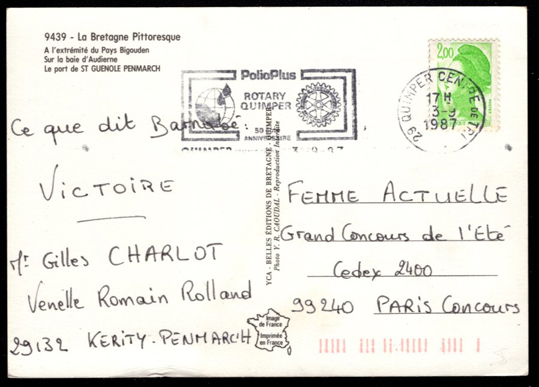 9439 - La Bretagne Pittoresque
A l'extrémité du Pays Bigouden
Sur la baie d'Audierne
Le port de ST GUENOLE PENMARCH
PolioPlus
ROTARY
QUIMPER
50
ANNIVERSAIRE
2,00
29 QUIMPER CENTRE DE TRI
17 H
3-9
1987
Ce que dit Barnabé :
VICTOIRE
Mr Gilles CHARLOT
Venelle Romain Rolland
29132 KERITY-PENMARCH
YCA - BELLES ÉDITIONS DE BRETAGNE - QUIMPER
Photo Y. R. CAOUDAL - Reproduction interdite
Image
de France
Imprimée
en France
FEMME ACTUELLE
Grand Concours de l'Eté
Cedex 2400
99240 PARIS Concours